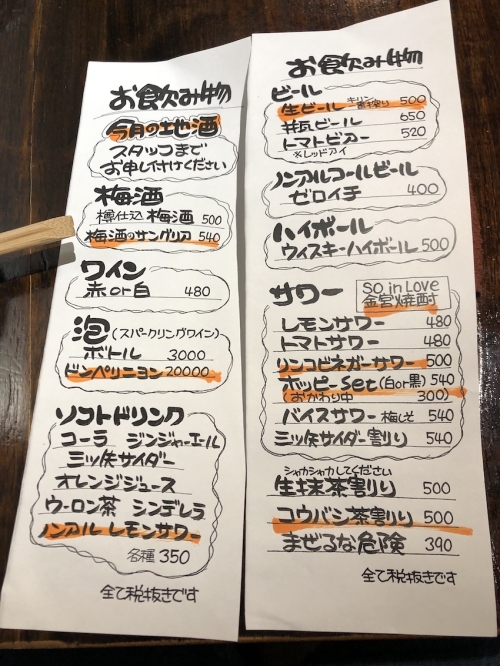 お飲み物
今月の地酒
スタッフまで
お申し付けください
梅酒
樽仕込 梅酒 500
梅酒のサングリア 540
ワイン
赤or白 480
泡(スパークリングワイン)
ボトル 3000
ドンペリニョン 20000
ソフトドリンク
コーラ ジンジャーエール
三ツ矢サイダー
オレンジジュース
ウーロン茶 シンデレラ
ノンアル レモンサワー
各種 350
全て税抜きです
お飲み物
ビール
生ビール キリン一番搾り 500
瓶ビール 650
トマトビアー 520
※レッドアイ
ノンアルコールビール
ゼロイチ 400
ハイボール
ウィスキーハイボール 500
サワー
so in Love
金宮焼酎
レモンサワー 480
トマトサワー 480
リンゴビネガーサワー 500
ホッピーset(白or黒) 540
(おかわり中 300)
バイスサワー 梅しそ 540
三ツ矢サイダー割り 540
シャカシャカしてください
生抹茶割り 500
コウバシ茶割り 500
まぜるな危険 390
全て税抜きです